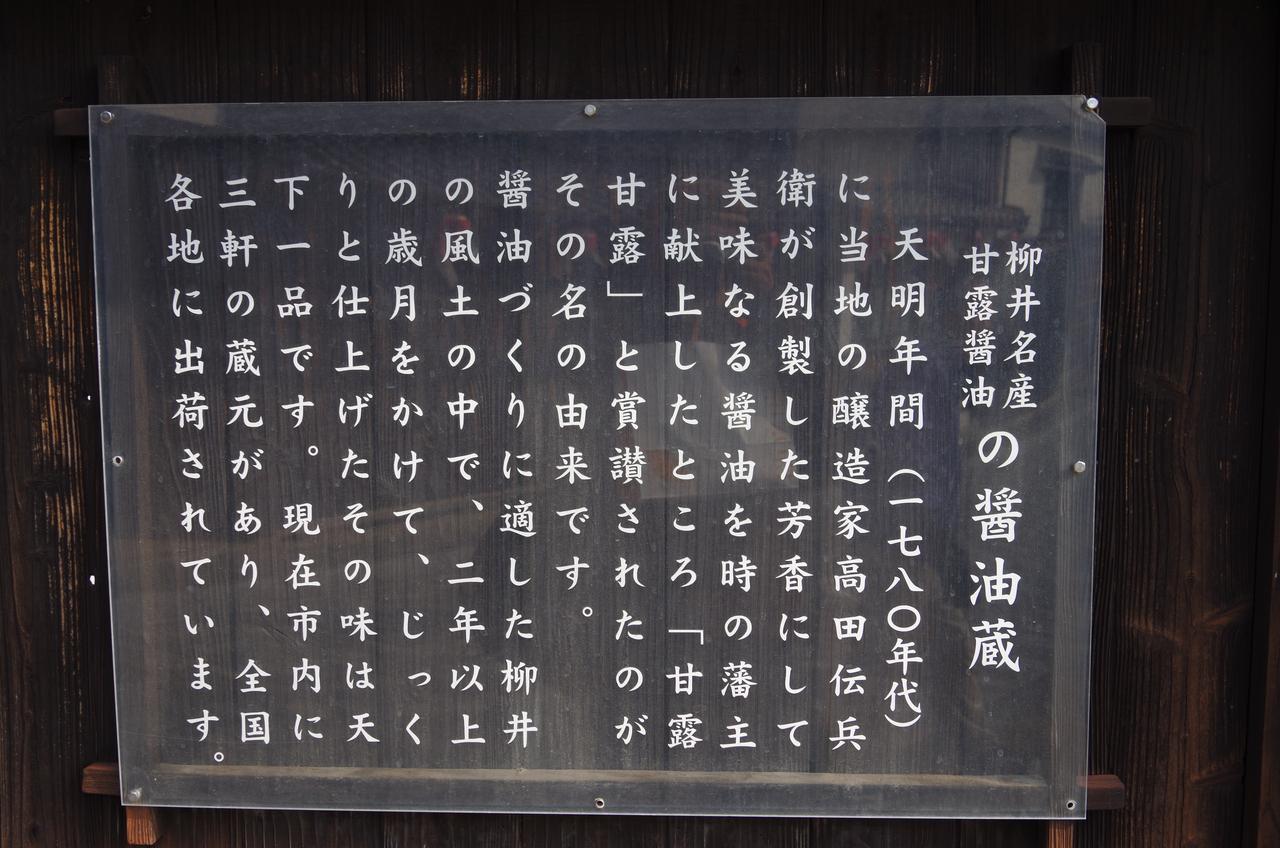 柳井名産
甘露醤油
の醤油蔵
天明年間（一七八〇年代）
に当地の醸造家高田伝兵
衛が創製した芳香にして
美味なる醤油を時の藩主
に献上したところ「甘露
甘露」と賞讃されたのが
その名の由来です。
醤油づくりに適した柳井
の風土の中で、二年以上
の歳月をかけて、じっく
りと仕上げたその味は天
下一品です。現在市内に
三軒の蔵元があり、全国
各地に出荷されています。